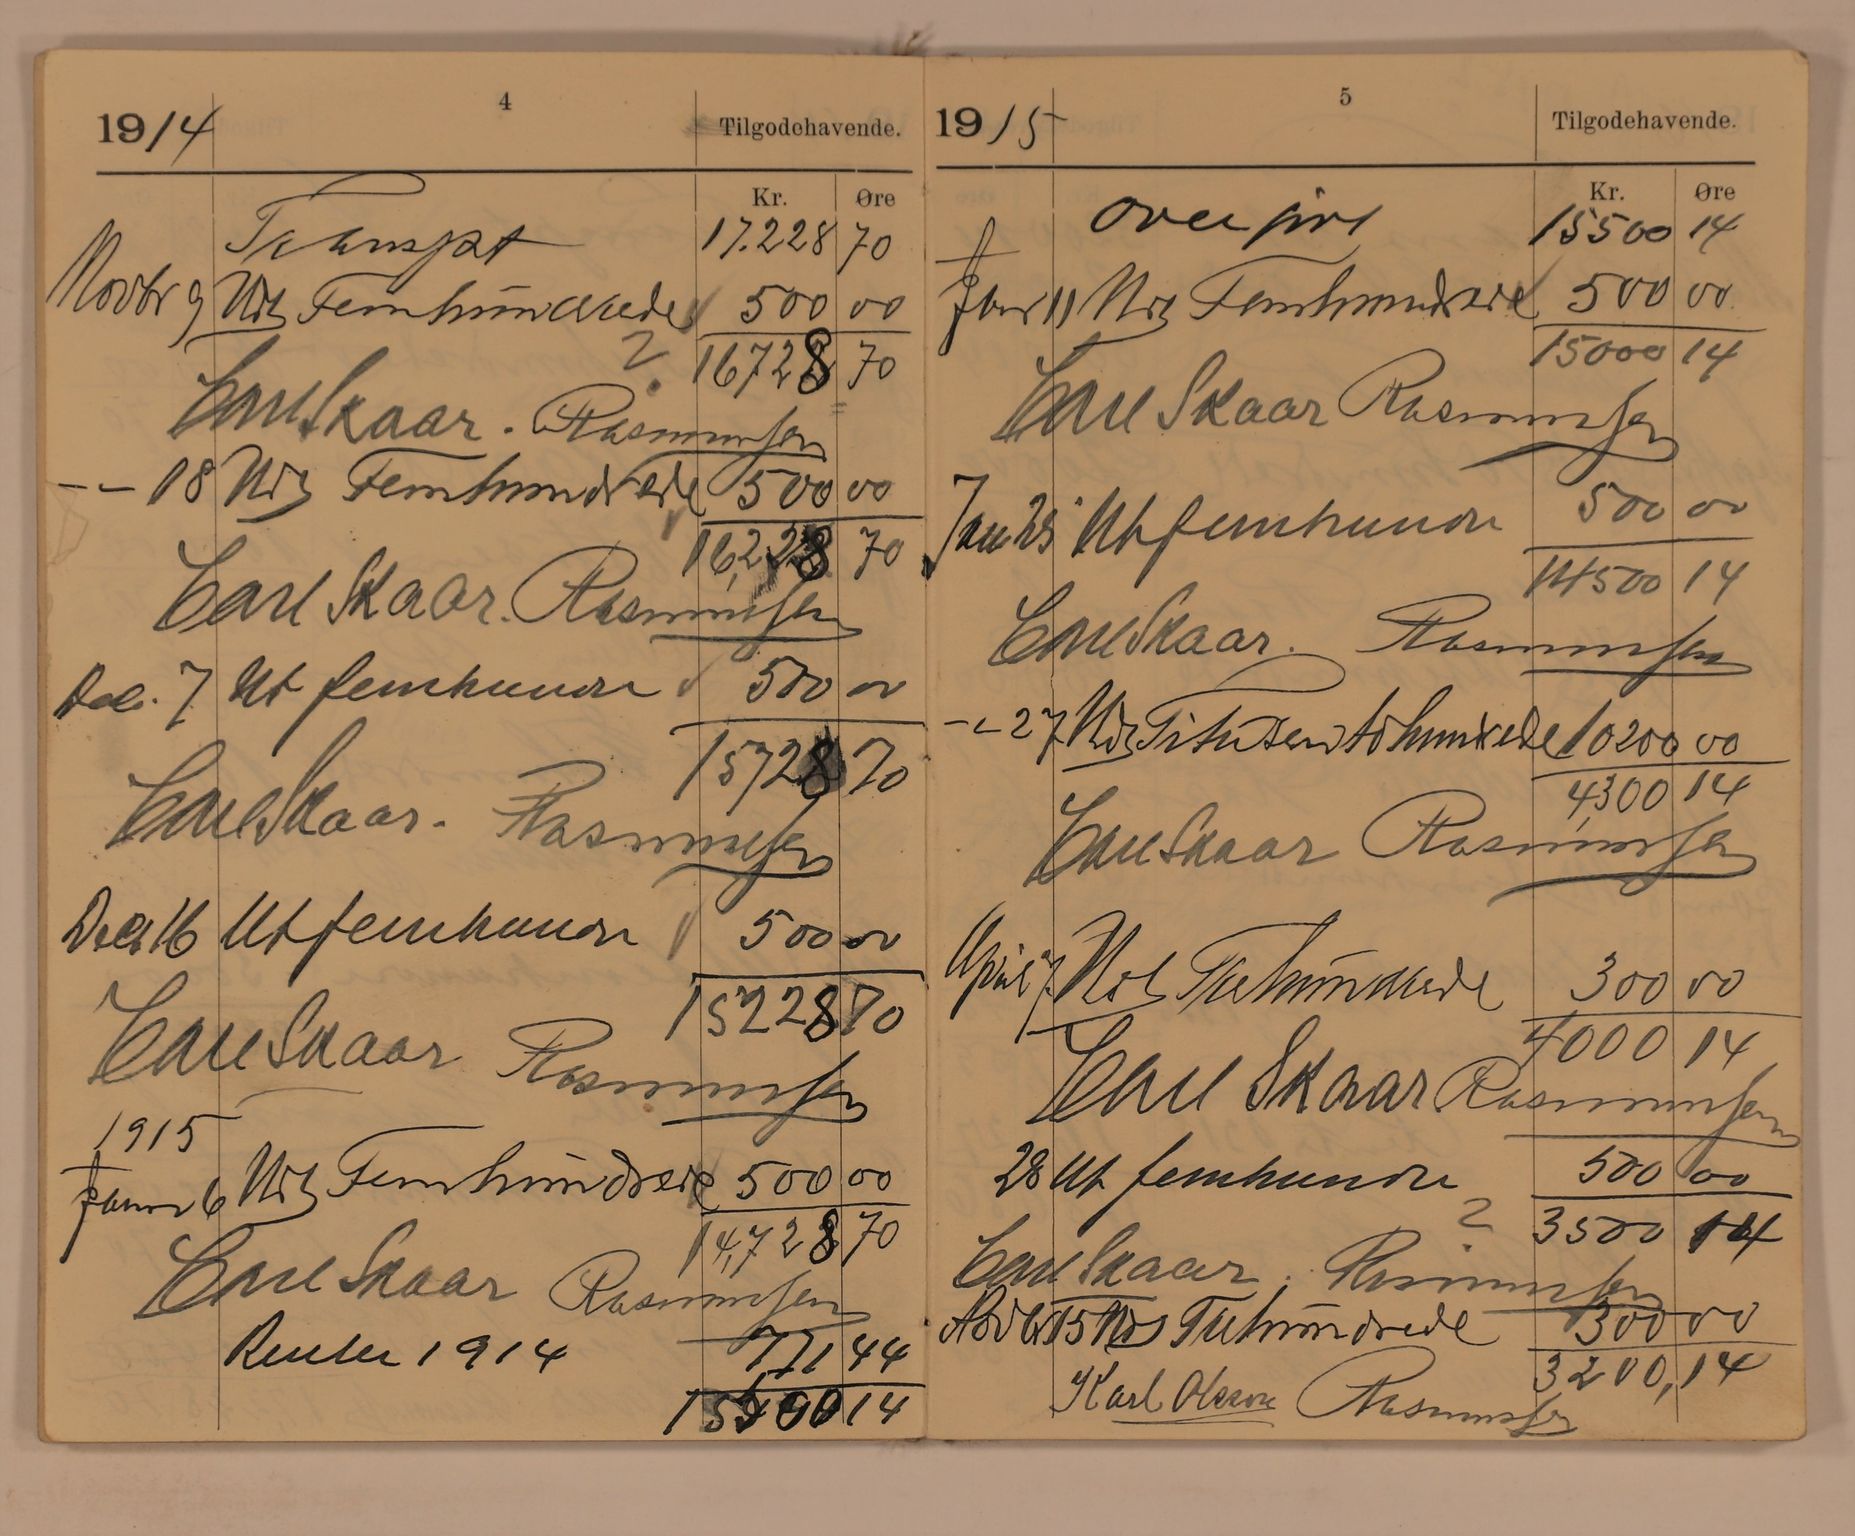 4
1914 Tilgodehavende.
Kr. Øre
Transpt 17.228 70
Novbr 9 Utb Femhundrede 500 00
? 16728 70
Carl Skaar. Rasmussen
-"- 18 Utb Femhundrede 500 00
16,228 70
Carl Skaar. Rasmussen
Dec. 7 Ut femhundre 500 00
15728 70
Carl Skaar. Rasmussen
Decb 16 Ut femhundre 500 00
15228 70
Carl Skaar Rasmussen
1915
Januar 6 Utb Femhundrede 500 00
14,728 70
Carl Skaar Rasmussen
Renter 1914 771 44
15500 14
5
1915 Tilgodehavende.
Kr. Øre
Overført 15500 14
Janr 11 Utb Femhundrede 500 00
15000 14
Carl Skaar Rasmussen
Jan 25 Ut femhundre 500 00
14500 14
Carl Skaar. Rasmussen
-"- 27 Utb Titusen tohundrede 10200 00
4,300 14
Carl Skaar Rasmussen
April 7. Utb Trehundrede 300 00
4000 14
Carl Skaar Rasmussen
28 Ut femhundre 500 00
? 3500 14
Carl Skaar. Rasmussen
Novbr 15 Utb Trehundrede 300 00
3200,14
Karl Olsson Rasmussen